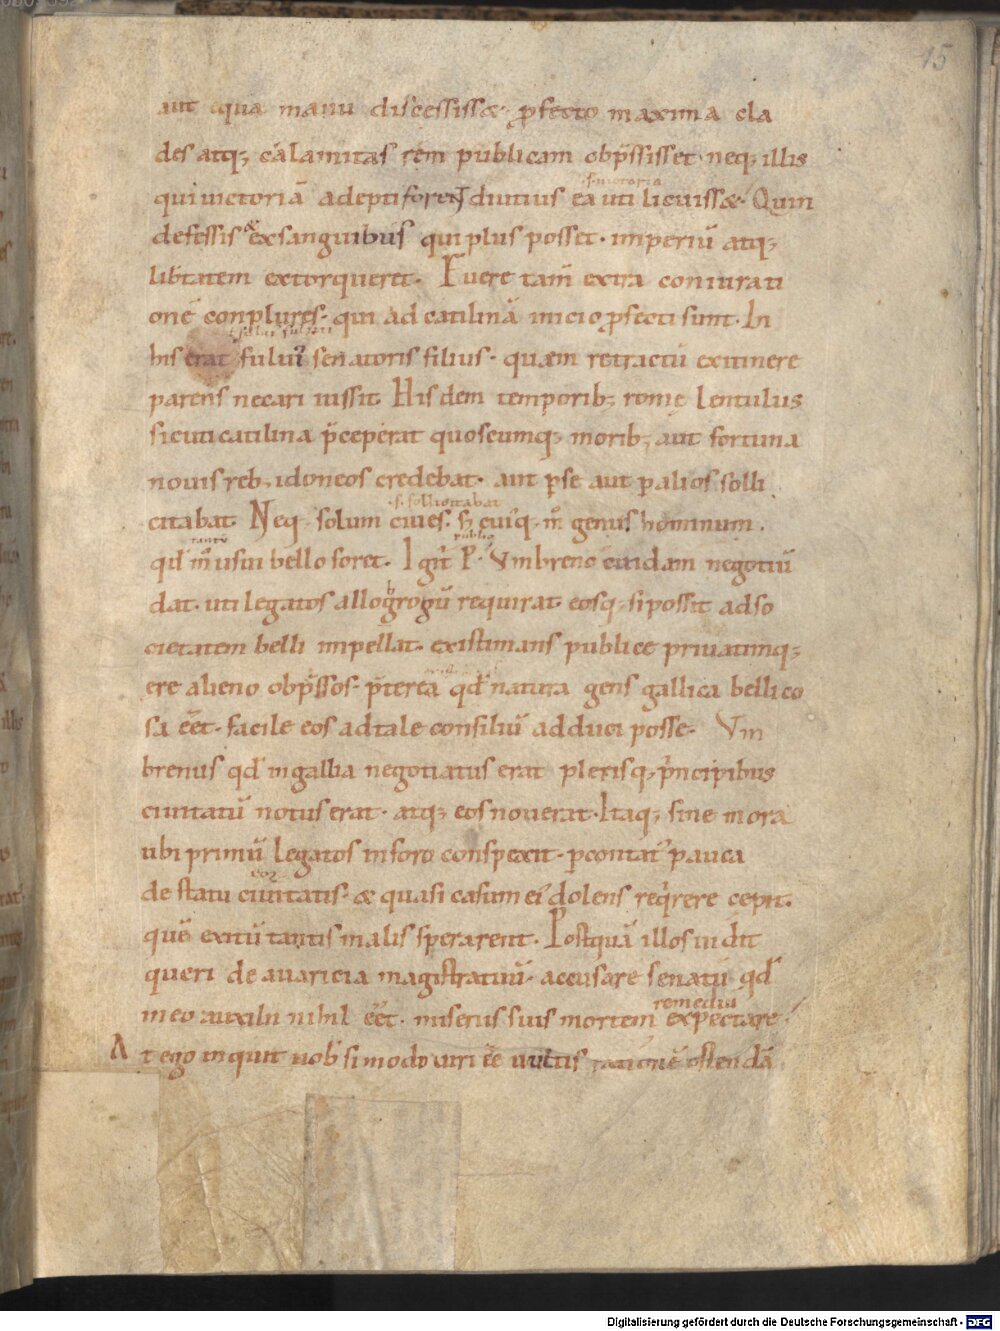 15
aut equa manu discessisset. ꝓfecto maxima cla
des atq; calamitas rem publicam obp̄ssisset. neq; illis
.s. uictoria
qui uictoriā adepti forent diutius ea uti licuisset. Quin
defessis & exsanguibus qui plus posset. imperiū atq;
lib̄tatem extorqueret. Fuere tam̄ extra coniurati
onē conplures. qui ad catilinā inicio ꝓfecti sunt. In
his erat fului' senatoris filius. quem retractū ex itinere
parens necari iussit. Hisdem temporib; romę Lentulus
sicuti catilina p̄ceperat quoscumq; morib; aut fortuna
nouis reb; idoneos credebat. aut ꝑ se aut ꝑ alios solli
.s. sollicitabat
citabat. Neq; solum ciues. s; cuiꝰq; m̊ genus hominum.
tantū publio
qd̄ m̊ usui bello foret. Igit̄ P. Vmbreno cuidam negotiū
dat. uti legatos allobrogū requirat eosq; si possit ad so
cietatem belli impellat. existimans publice priuatimq;
ere alieno obp̄ssos. p̄terea qd̄ natura gens gallica bellico
sa eēt. facile eos ad tale consiliū adduci posse. Vm
brenus qd̄ in gallia negotiatus erat plerisq; p'ncipibus
ciuitatū notus erat. atq; eos nouerat. Itaq; sine mora
ubi primū legatos in foro conspexit. ꝑcontat' pauca
de statu ciuitatis. & quasi casum ei' dolens req'rere cepit.
quē exitū tantis malis sperarent. Postquā illos uidit
queri de auaricia magistratuū. accusare senatū qd̄
remediū
in eo auxilii nihil eēt. miseriis suis mortem expectare.
At ego inquit uob' si modo uiri eē uultis rationē ostendā
Digitalisierung gefördert durch die Deutsche Forschungsgemeinschaft - DFG